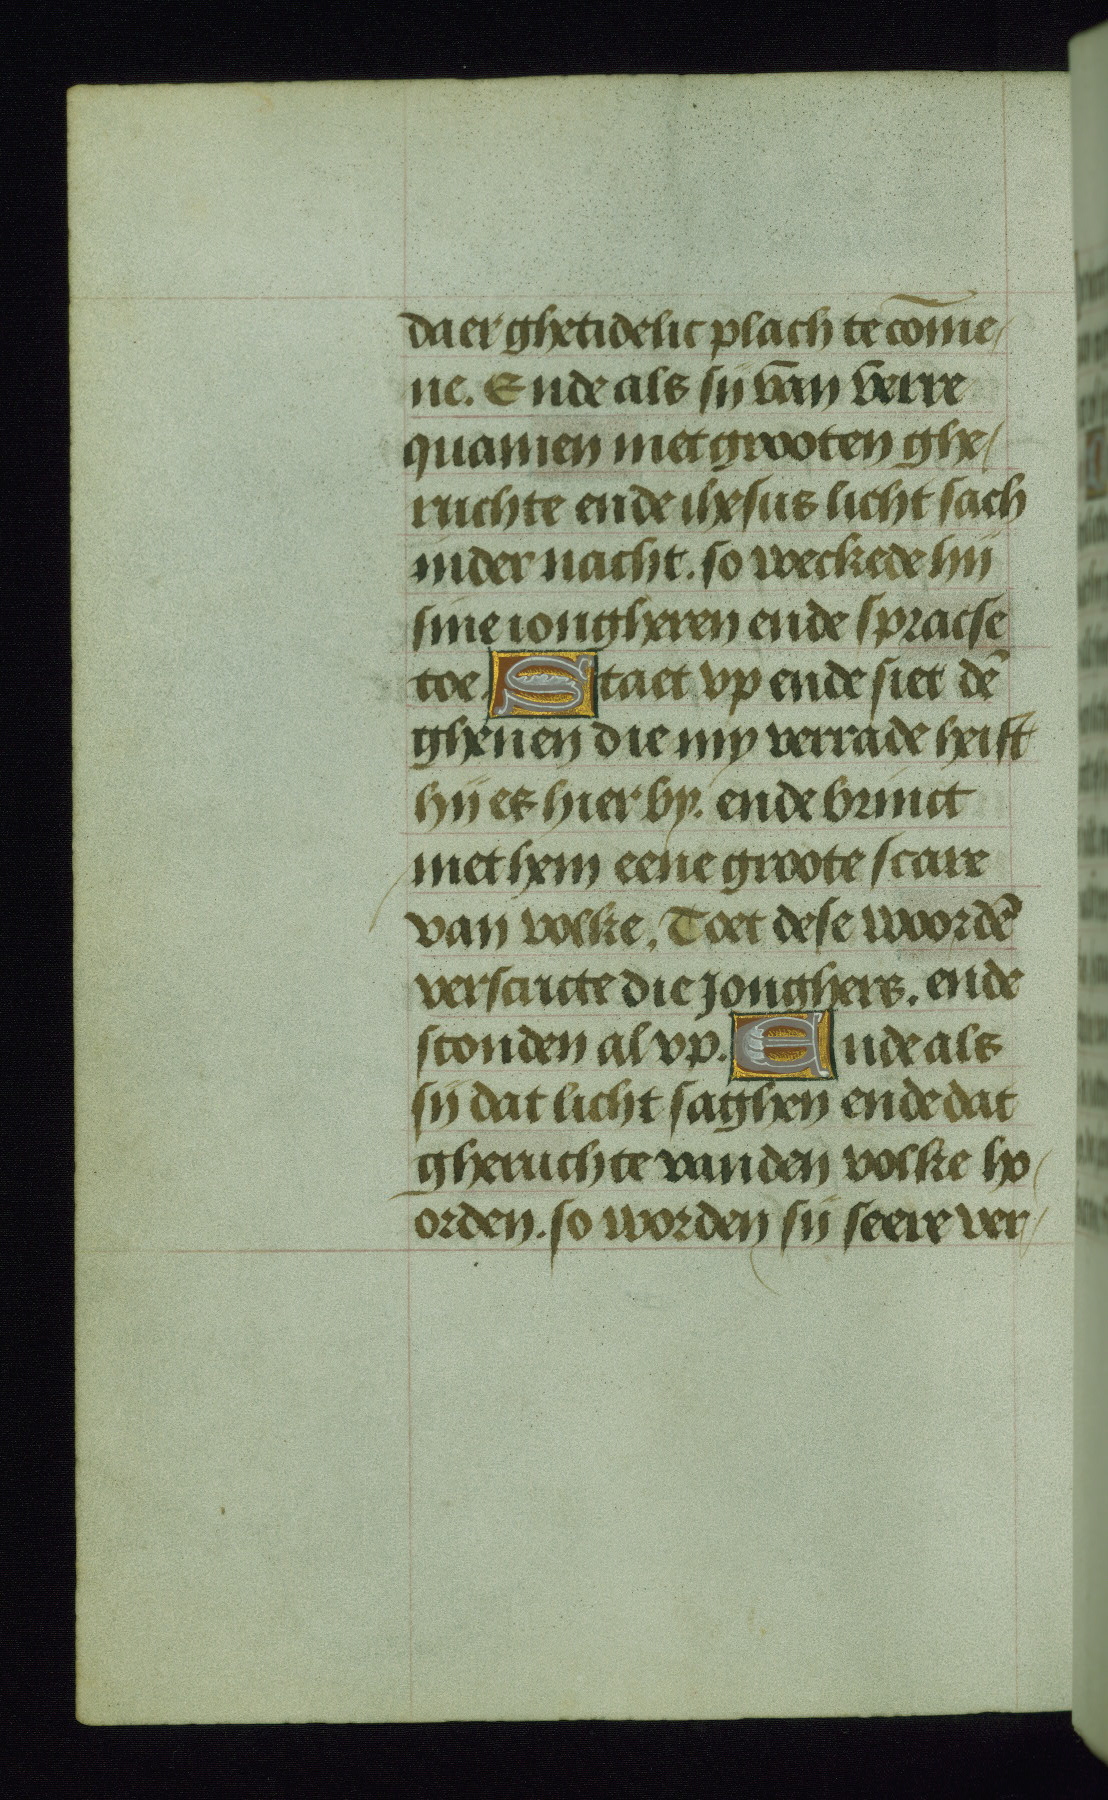 daer ghetidelic plach te com̄e/
ne. Ende als sij van verre
quamen met grooten ghe/
ruchte ende ihesus licht sach
inder nacht. so weckede hij
sine iongheren ende spracse
toe. Staet vp ende siet dē
ghenen die my verrade heift
hij es hier by. ende brinct
met hem eene groote scare
van volke. Toet dese woordē
verscricte die Jonghers. ende
stonden al vp. Ende als
sij dat licht saghen ende dat
gheruchte vanden volke ho/
orden. so worden sij seere ver/